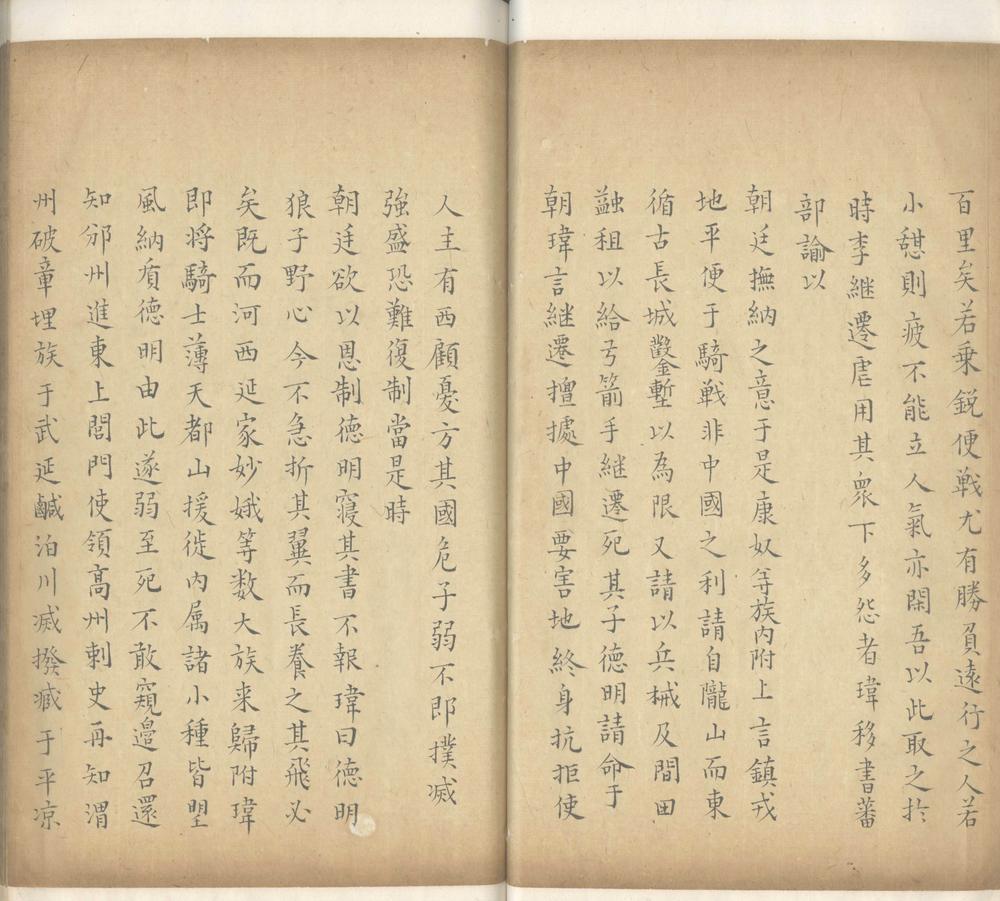 百里矣若乗鋭便戦尤有勝負遠行之人若
小憇則疲不能立人氣亦閑吾以此取之於
時李継遷虐用其衆下多怨者瑋移書蕃
部諭以
朝廷撫納之意于是康奴等族内附上言鎮戎
地平便于騎戦非中國之利請自隴山而東
循古長城鑿塹以為限又請以兵械及間田
融租以給弓箭手継遷死其子德明請命于
朝瑋言継遷擅據中國要害地終身抗拒使
人主有西顧憂方其國危子弱不即撲滅
強盛恐難復制當是時
朝廷欲以恩制德明寝其書不報瑋曰德明
狼子野心今不急折其翼而長養之其飛必
矣既而河西延家妙娥等数大族来歸附瑋
即将騎士薄天都山援徙内属諸小種皆朢
風納質德明由此遂弱至死不敢窺邉召還
知邠州進東上閤門使領高州刺史再知渭
州破章埋族于武延鹹泊川滅撥臧于平凉